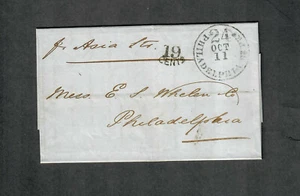 pr Asia Str.
19
CENTS
24
OCT
11
PHILADELPHIA PA.
Messrs E S Whelen & Co
Philadelphia